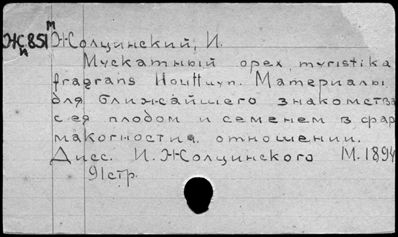 Ж851 Жолцинский, И.
Мускатный орех myristika
fragrans Houttuyn. Материалы
для ближайшего знакомства
с ея плодом и семенем в фар
макогностич. отношении.
Дисс. И. Жолцинского М. 1894
91 стр.